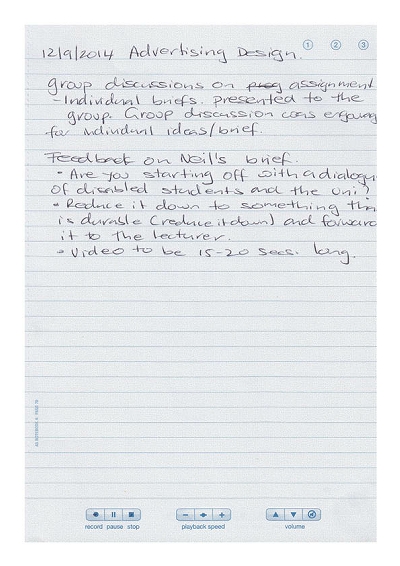 12/9/2014 Advertising Design.
1 2 3
group discussions on assignment
- Individual briefs. presented to the
group. Group discussion cons
for individual ideas/brief.
Feedback on Neil's brief.
• Are you starting off with a dialogu
of disabled students and the Uni?
• Reduce it down to something tha
is durable (reduce it down) and forward
it to the lecturer.
• Video to be 15-20 secs. long.
A5 NOTEBOOK 4 PAGE
record pause stop playback speed volume